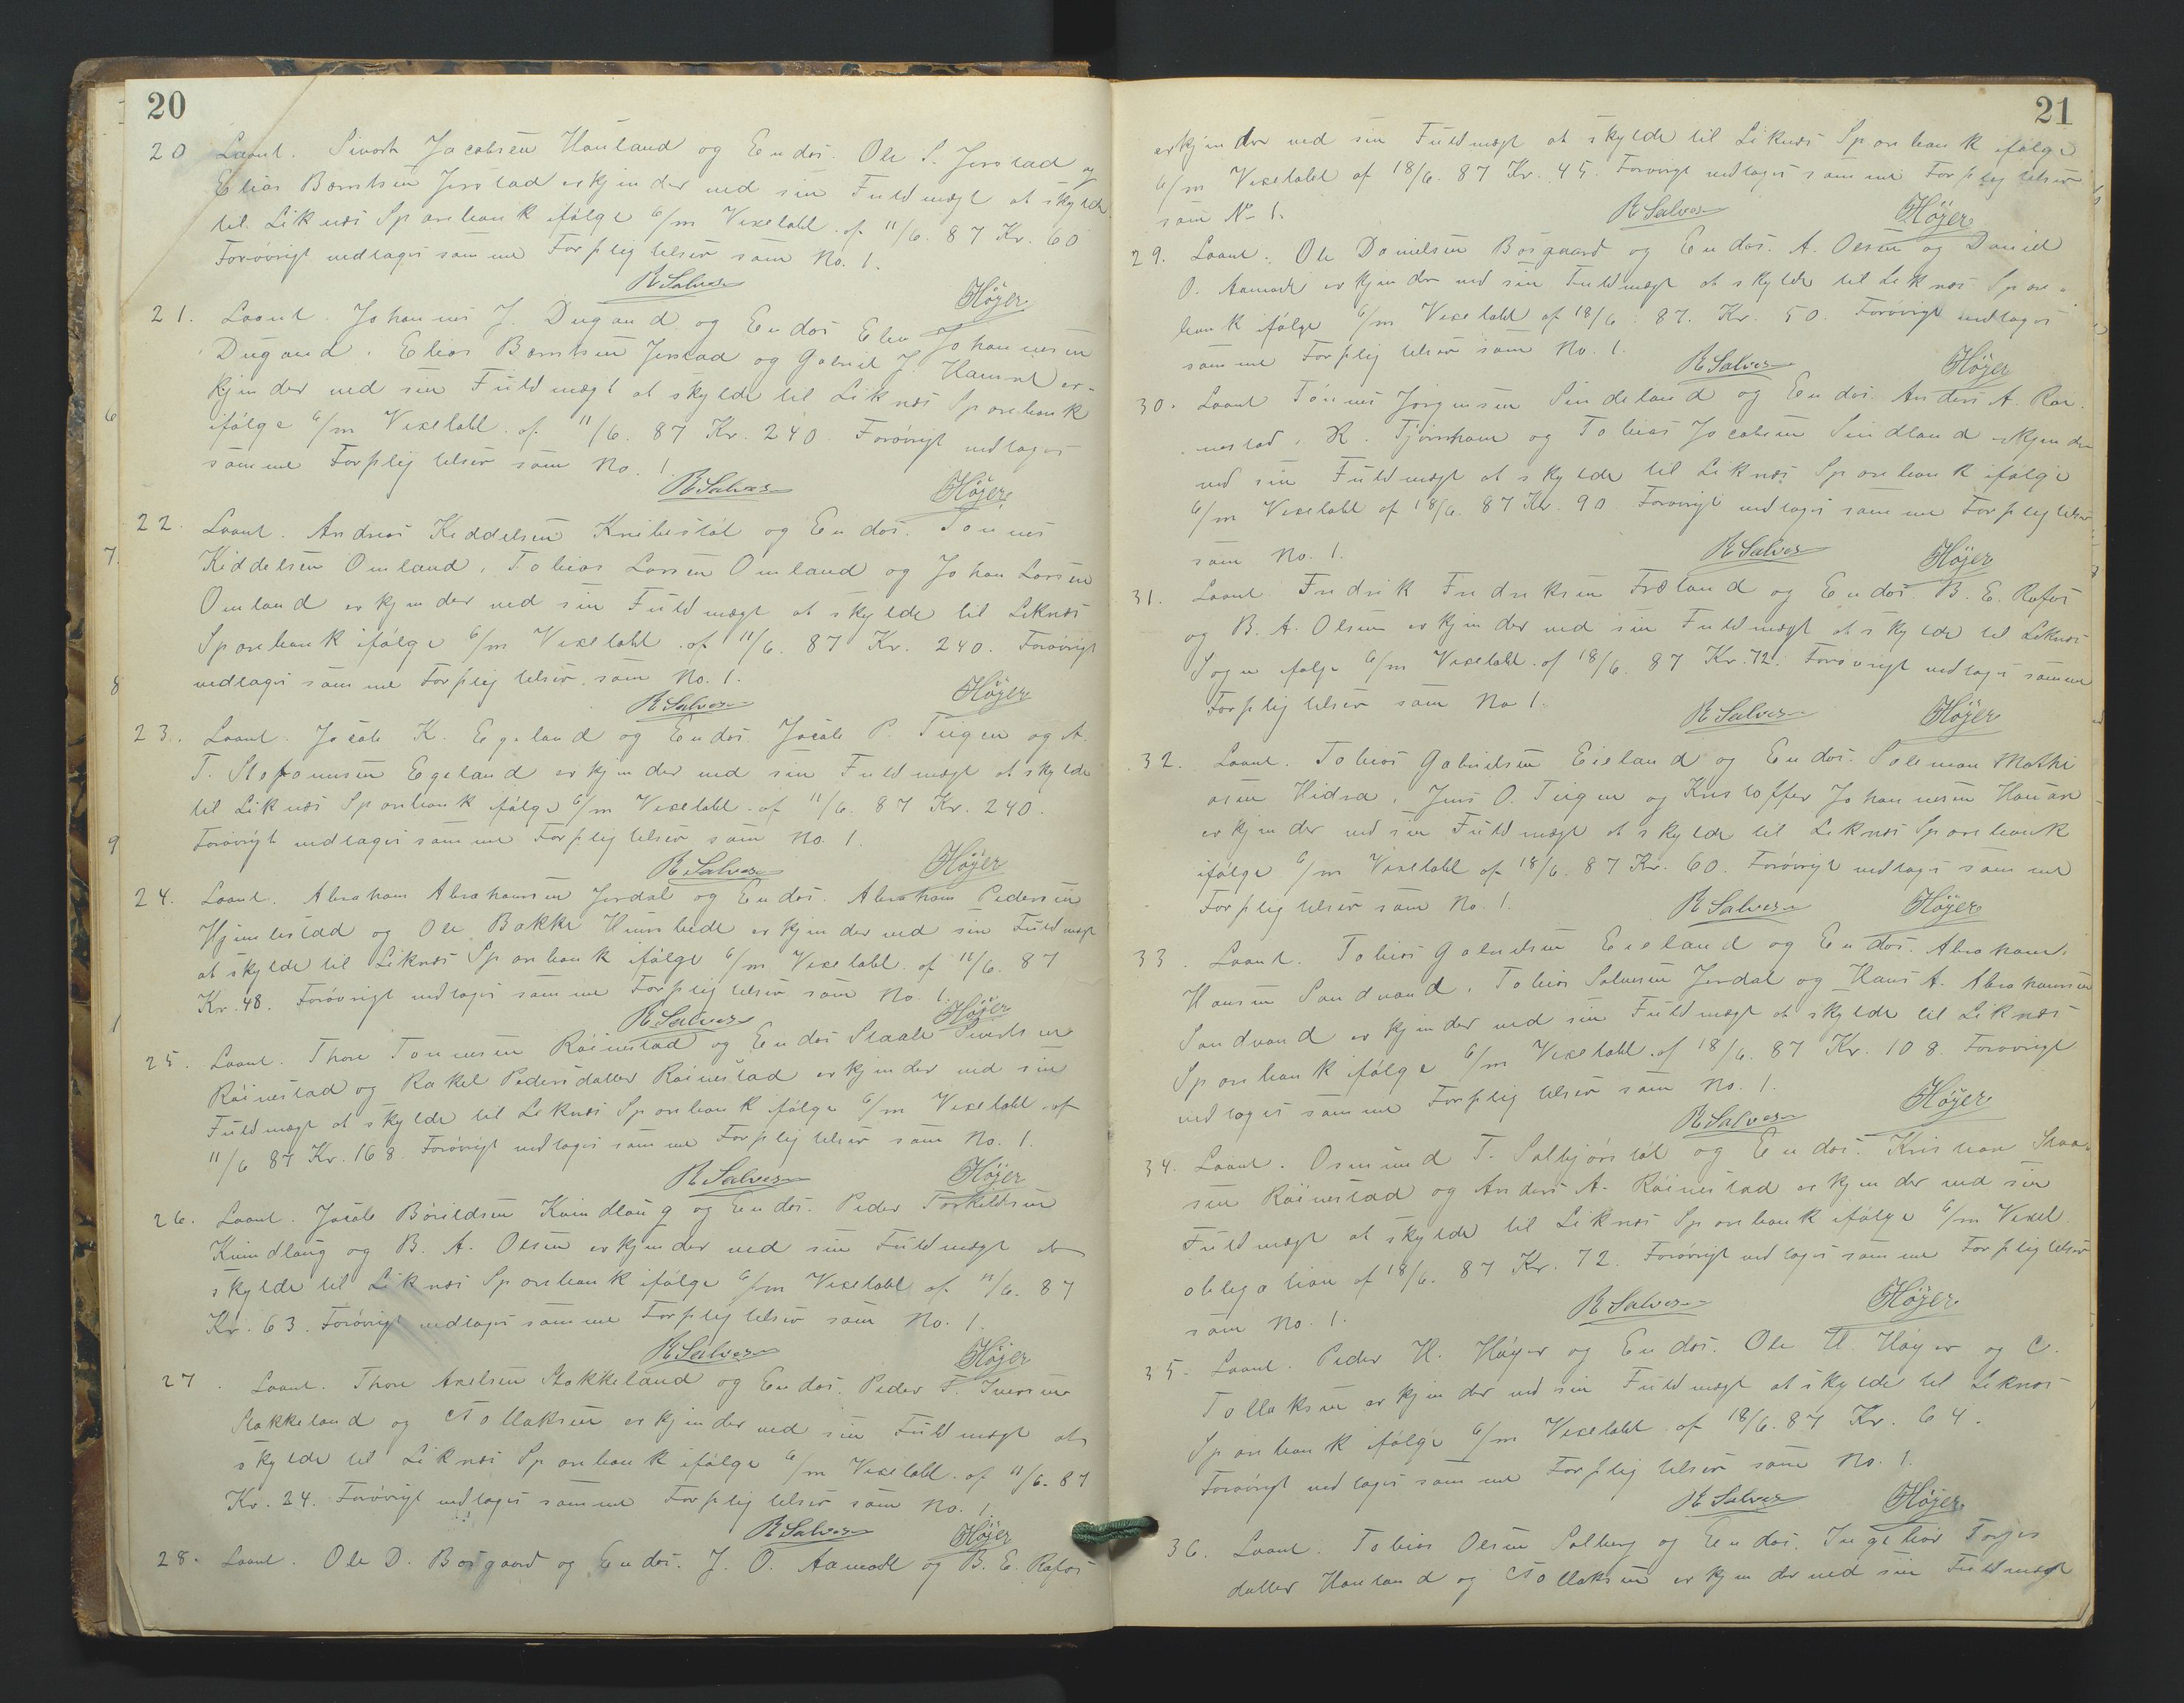 20
20 Laant. Sivert Jacobsen Hauland og Endos. Ole S. Jerstad og
Elias Berntsen Jerstad erkjender ved sin Fuldmægt at skylde
til Liknes Sparebank ifølge 6/m Vexelobl. af 11/6. 87 Kr. 60
Forøvrigt vedtages samme Forpligtelser som No. 1.
R Salves Höyer
21. Laant. Johannes J. Dugand og Endos Johannesen
Dugand, Elias Berntsen Jerstad og Gabriel J. er-
kjender ved sin Fuldmægt at skylde til Liknes Sparebank
ifølge 6/m Vexelobl. af 11/6. 87 Kr. 240. Forøvrigt vedtages
samme Forpligtelser som No. 1.
R Salves Höyer
22. Laant. Andreas Keddelsen Knibestøl og Endos. Tønnes
Kiddelsen Omland, Tobias Larsen Omland og Johan Larsen
Omland erkjender ved sin Fuldmægt at skylde til Liknes
Sparebank ifølge 6/m Vexelobl. af 11/6. 87 Kr. 240. Forøvrigt
vedtages samme Forpligtelser som No. 1.
R Salves Höyer
23. Laant. Jacob K. Egeland og Endos. Jacob P. og A.
T. Stefanusen Egeland erkjender ved sin Fuldmægt at skylde
til Liknes Sparebank ifølge 6/m Vexelobl. af 11/6. 87 Kr. 240.
Forøvrigt vedtages samme Forpligtelser som No. 1.
R Salves Höyer
24. Laant. Abraham Abrahamsen Jerdal og Endos. Abraham Pedersen
Hjemlestad og Ole Bakke erkjender ved sin Fuldmægt
at skylde til Liknes Sparebank ifølge 6/m Vexelobl. af 11/6. 87
Kr. 48. Forøvrigt vedtages samme Forpligtelser som No. 1.
R Salves Höyer
25. Laant. Thore Tønnesen Röinestad og Endos Staale Sivertsen
Röinestad og Rakel Pedersdatter Röinestad erkjender ved sin
Fuldmægt at skylde til Liknes Sparebank ifølge 6/m Vexelobl. af
11/6 87 Kr. 168. Forøvrigt vedtages samme Forpligtelser som No. 1.
R Salves Höyer
26. Laant. Jacob Børildsen Kvindlaug og Endos. Peder Torkildsen
Kvindlaug og B. A. Olsen erkjender ved sin Fuldmægt at
skylde til Liknes Sparebank ifølge 6/m Vexelobl. af 11/6. 87
Kr. 63. Forøvrigt vedtages samme Forpligtelser som No. 1.
R Salves Höyer
27. Laant. Thore Axelsen Stakkeland og Endos. Peder T. Iversen
Stakkeland og Tollaksen erkjender ved sin Fuldmægt at
skylde til Liknes Sparebank ifølge 6/m Vexelobl. af 11/6. 87
Kr. 24. Forøvrigt vedtages samme Forpligtelser som No. 1.
R Salves Höyer
28. Laant. Ole D. Bosgaard og Endos. J. O. Aamodt og B. E. Rafos
21
erkjender ved sin Fuldmægt at skylde til Liknes Sparebank ifølge
6/m Vexelobl af 18/6. 87 Kr. 45. Forøvrigt vedtages samme Forpligtelser
som No 1.
R Salves Höyer
29. Laant. Ole Danielsen Bosgaard og Endos. A. Olsen og Daniel
O. Aamodt erkjender ved sin Fuldmægt at skylde til Liknes Spare-
bank ifølge 6/m Vexelobl af 18/6 87. Kr. 50. Forøvrigt vedtages
samme Forpligtelser som No. 1.
R Salves Höyer
30. Laant Tönnes Jörgensen Sindeland og Endos. Anders A. Röi-
nestad, R. Tjörnhom og Tobias Jacobsen Sindland erkjender
ved sin Fuldmægt at skylde til Liknes Sparebank ifølge
6/m Vexelobl af 18/6. 87 Kr. 90 Forøvrigt vedtages samme Forpligtelser
som No. 1.
R Salves Höyer
31. Laant. Fredrik Fredriksen Træland og Endos B. E. Rafos
og B. A. Olsen erkjender ved sin Fuldmægt at skylde til Liknes
Sogn ifølge 6/m Vexelobl. af 18/6. 87 Kr. 72. Forøvrigt vedtages samme
Forpligtelser som No 1.
R Salves Höyer
32. Laant. Tobias Gabrielsen Eieland og Endos. Salomon Mathi
asen Hidra, Jens O. og Kristoffer Johannesen
erkjender ved sin Fuldmægt at skylde til Liknes Sparebank
ifølge 6/m Vexelobl af 18/6. 87 Kr. 60. Forøvrigt vedtages samme
Forpligtelser som No. 1.
R Salves Höyer
33. Laant. Tobias Gabrielsen Eieland og Endos. Abraham
Hansen Sandvand, Tobias Salvesen Jerdal og Hans A. Abrahamsen
Sandvand erkjender ved sin Fuldmægt at skylde til Liknes
Sparebank ifølge 6/m Vexelobl. af 18/6. 87 Kr. 108. Forøvrigt
vedtages samme Forpligtelser som No. 1.
R Salves Höyer
34. Laant. Osmund T. Salbjörstöl og Endos. Kristian Staa-
sen Röinestad og Anders A. Röinestad erkjender ved sin
Fuldmægt at skylde til Liknes Sparebank ifølge 6/m Vexel
obligation af 18/6. 87 Kr. 72. Forøvrigt vedtages samme Forpligtelser
som No. 1.
R Salves Höyer
35. Laant. Peder H. Höyer og Endos. Ole H. Höyer og C.
Tollaksen erkjender ved sin Fuldmægt at skylde til Liknes
Sparebank ifølge 6/m Vexelobl. af 18/6. 87 Kr. 64.
Forøvrigt vedtages samme Forpligtelser som No. 1.
R Salves Höyer
36. Laant. Tobias Olsen Solberg og Endos. Ingebor Torjes
datter Hauland og Tollaksen erkjender ved sin Fuldmægt